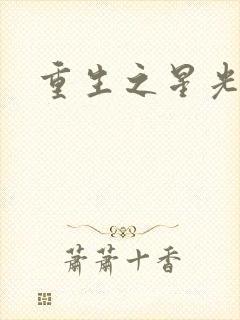 重生之星光
萧萧十香